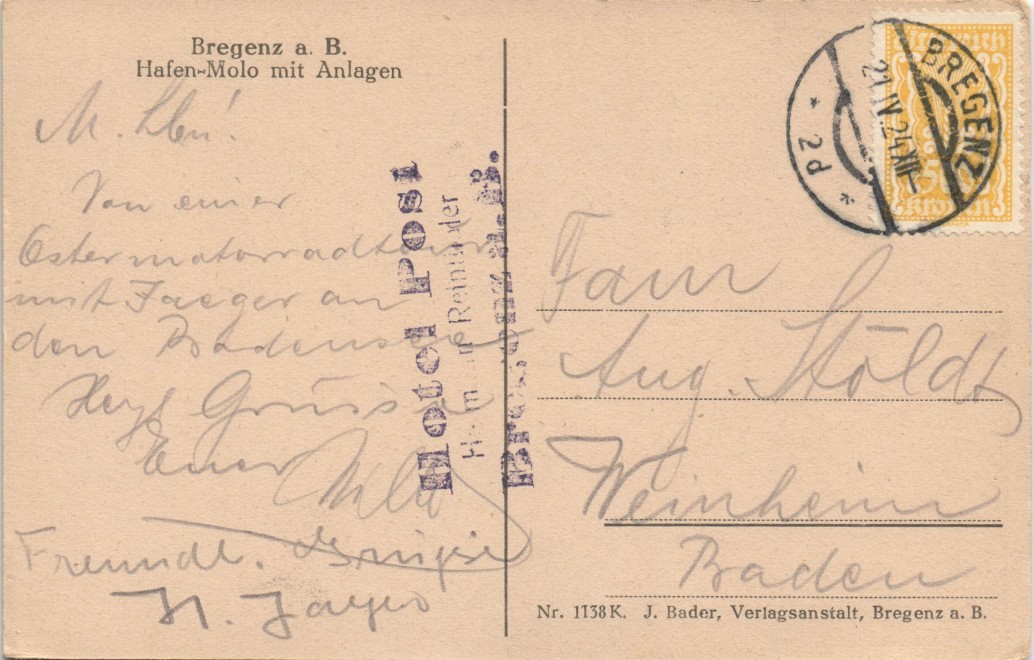 Bregenz a. B.
Hafen-Molo mit Anlagen
M. Lbn!
Von einer
Ostermotorradtour
mit Jaeger an
den Bodensee
Herzl Grüsse
Euer
Freundl. Grüsse
H. Jaeger
Hotel Post
Bregenz a. B.
BREGENZ
21.IV.24.XII
* 2d *
500
Kronen
Fam
Aug. Stöldt
Weinheim
Baden
Nr. 1138 K. J. Bader, Verlagsanstalt, Bregenz a. B.